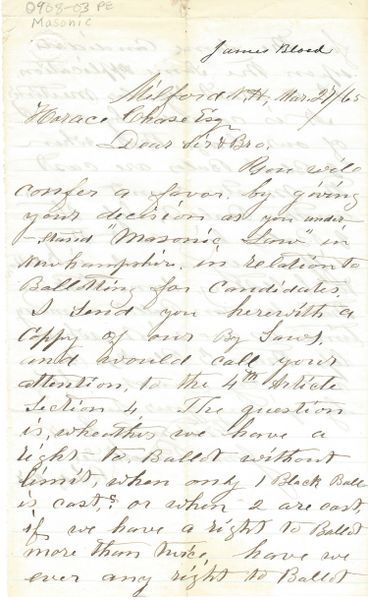 0908-03 PE
Masonic
James Blood
Milford N.H. Mar. 27/65
Horace Chase Esq
Dear Sir & Bro.
You will
confer a favor by giving
your decision as you under-
-stand "Masonic Law" in
New hampshire, in relation to
Balloting for candidates.
I send you herewith a
Coppy of our By Laws,
and would call your
attention, to the 4th Article
Section 4. The question
is, wheather we have a
right to Ballot without
limit, when only 1 Black Ball
is cast, or when 2 are cast,
if we have a right to Ballot
more than twice, have we
ever any right to Ballot